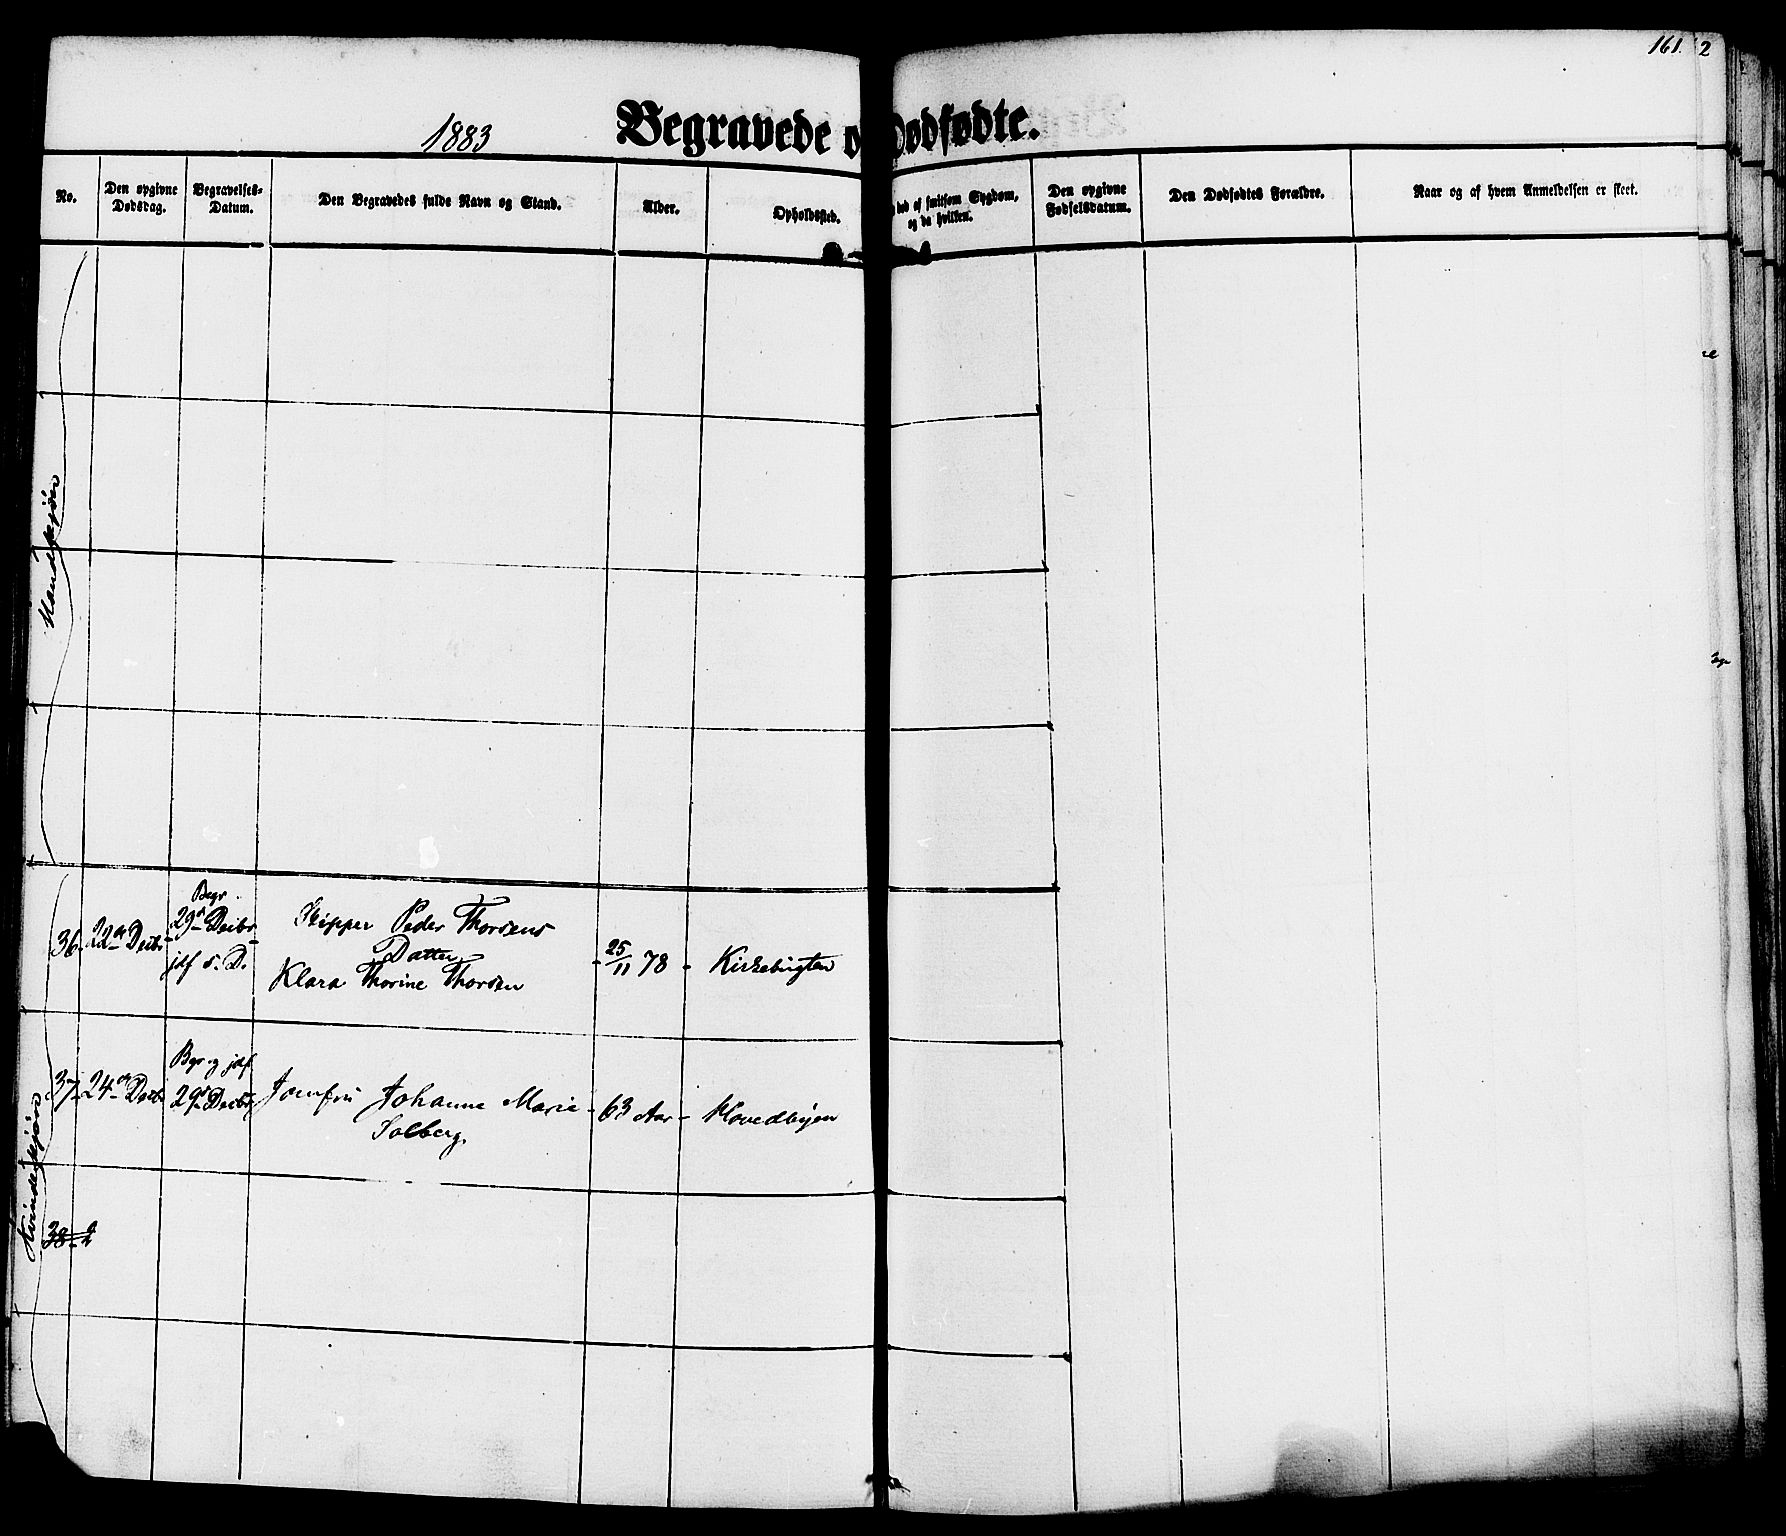 161. 2
1883
Begravede o Dødfødte.
No.
Den opgivne
Dødsdag.
Begravelses-
Datum.
Den Begravedes fulde Navn og Stand.
Alder.
Opholdssted.
død af smitsom Sygdom,
og da hvilken.
Den opgivne
Fødselsdatum.
Den Dødfødtes Forældre.
Naar og af hvem Anmeldelsen er skeet.
Mandskjøn
Kvindeskjøn
36.
22de Decbr
Begr.
29de Decbr
jdf s. D.
Skipper Peder Thorsens
Datter
Klara Thorine Thorsen
25/11 78
Kirkebugten
37
24de Decbr
Begr. og jdf
29de Decbr
Jomfru Johanne Marie
Solberg.
63 Aar
Hovedbyen
38